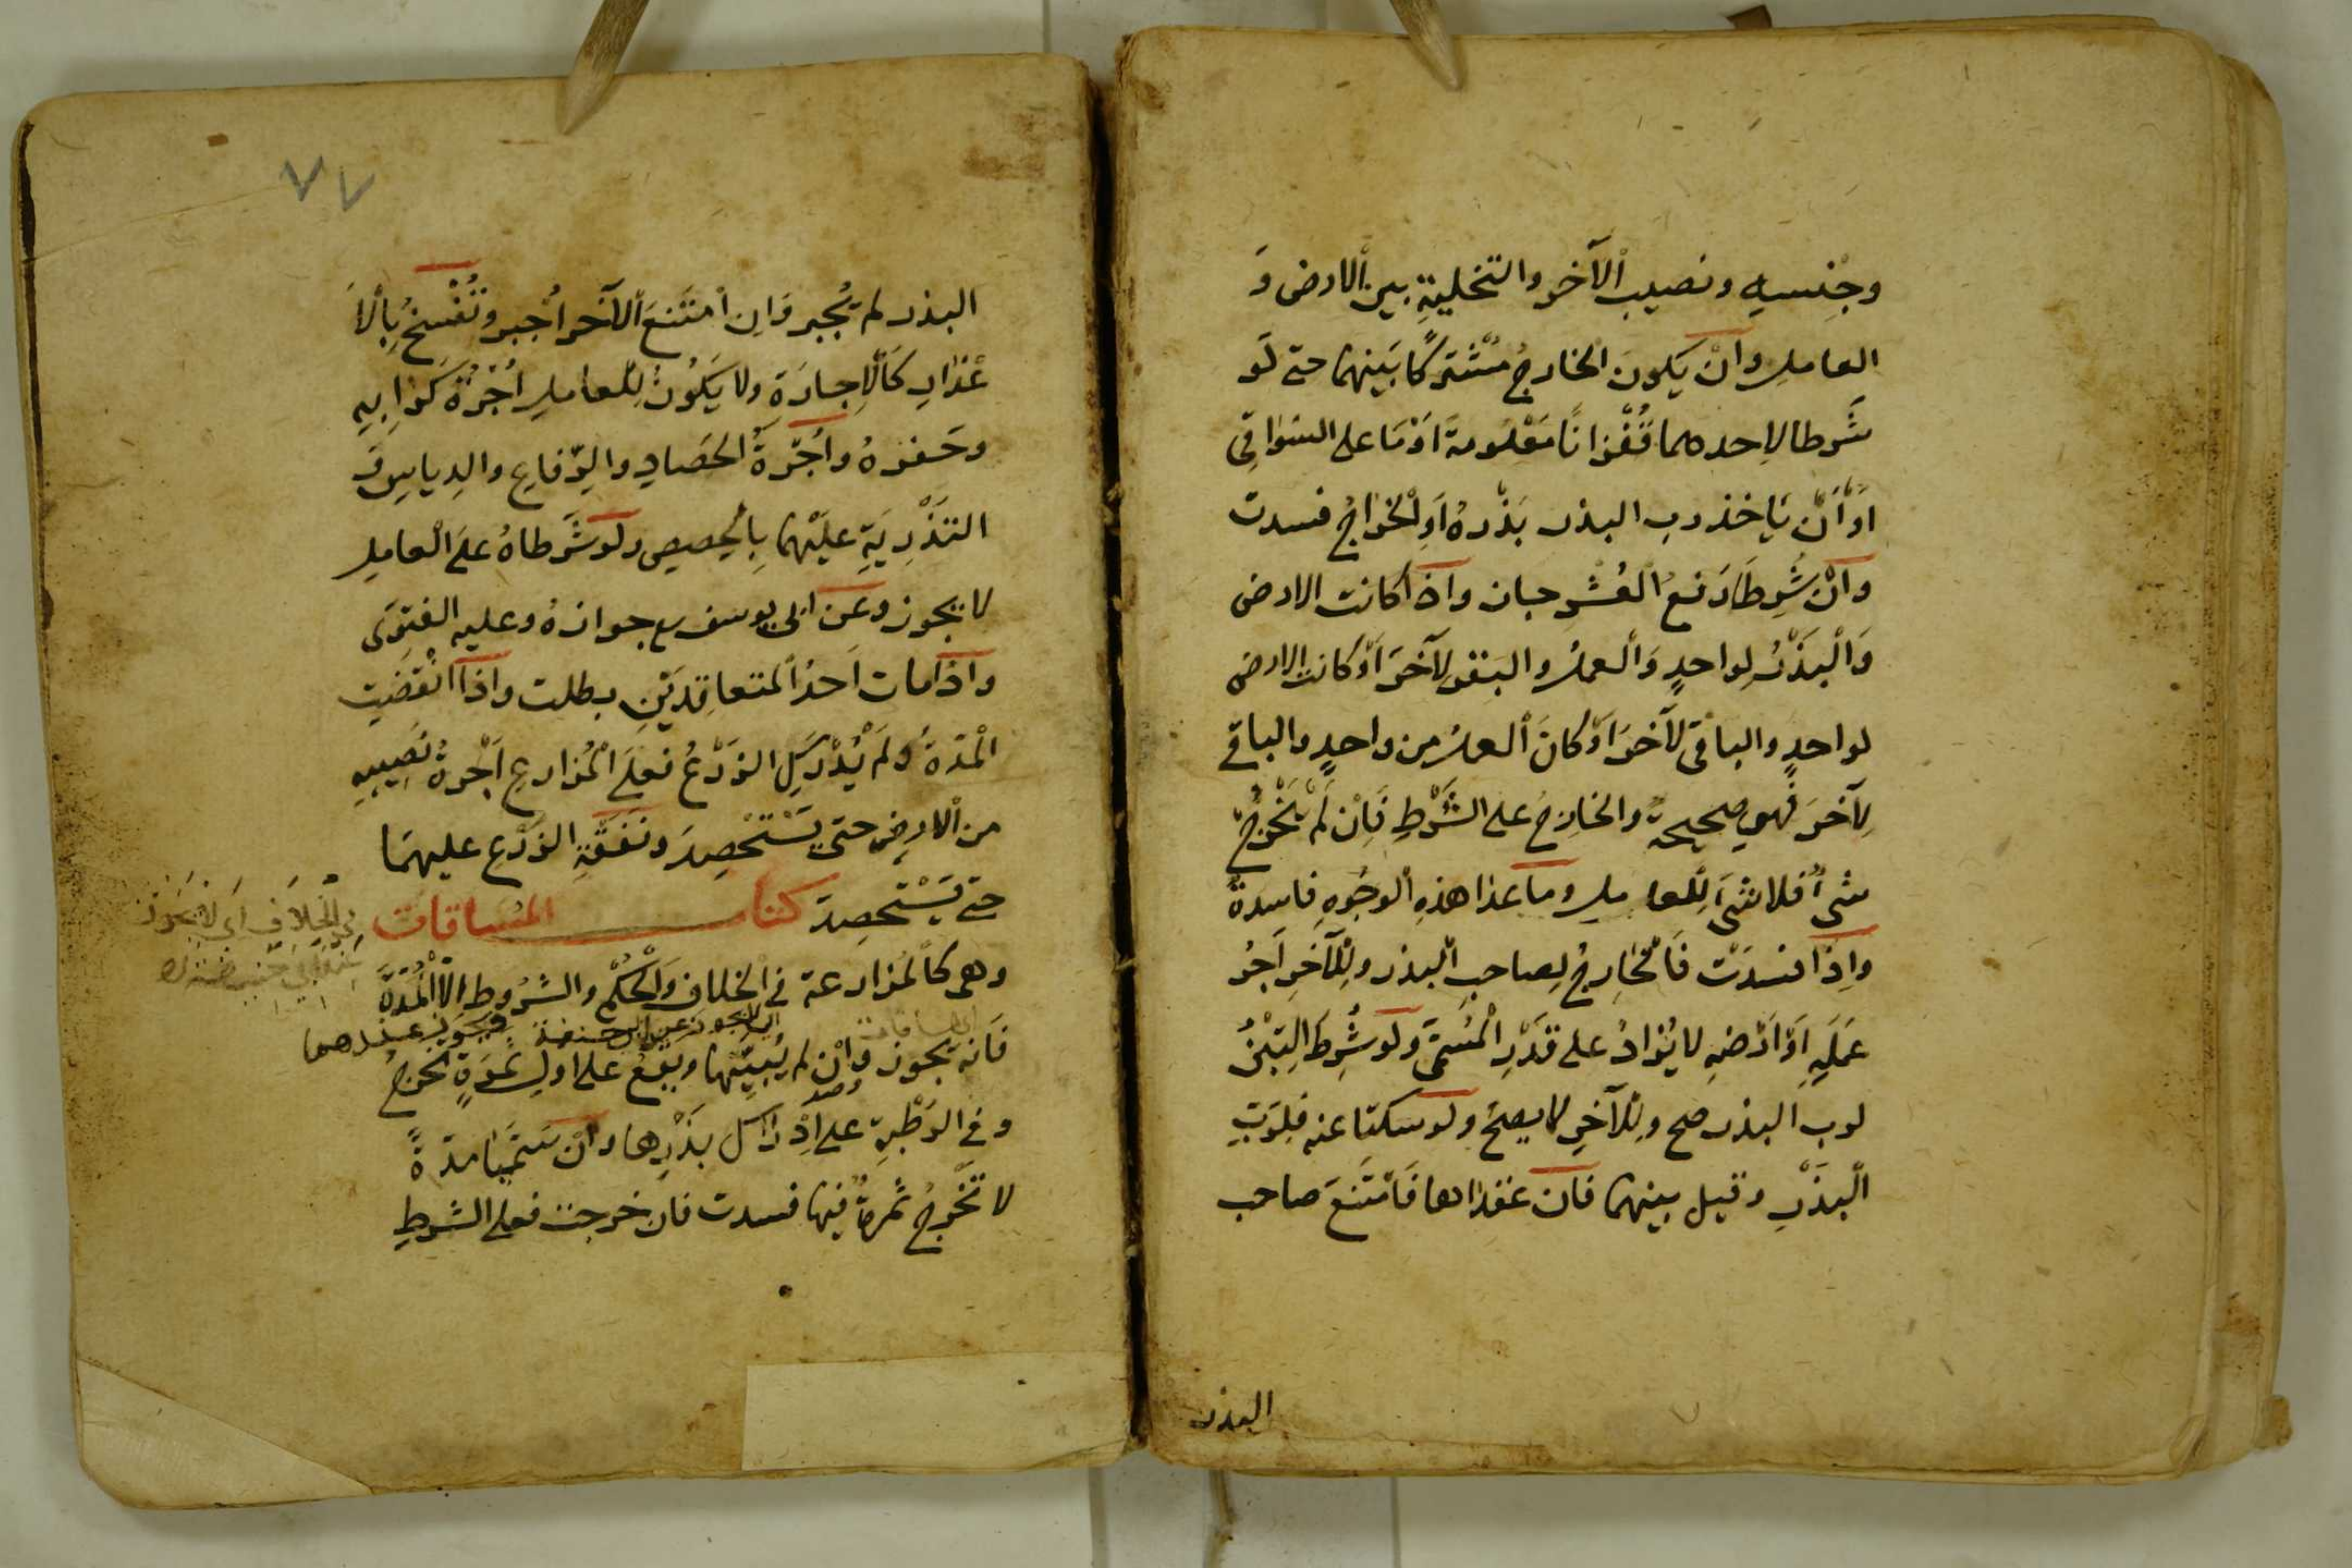 وجنسه ونصيب الآخر والتخلية بين الارض و
العامل وان يكون الخارج مشتركا بينهما حتى لو
شرطا لاحدهما قفزانا معلومة او ما على السواقى
او ان ياخذ رب البذر بذره او الخراج فسدت
وان شرطا دفع العشر جاز واذا كانت الارض
والبذر لواحد والعمل والبقر لآخر او كانت الارض
لواحد والباقى لآخر او كان العمل من واحد والباقى
لآخر فهى صحيحة والخارج على الشرط فان لم يخرج
شىء فلا شىء للعامل وما عدا هذه الوجوه فاسدة
واذا فسدت فالخارج لصاحب البذر وللآخر اجر
عمله او ارضه لا يزاد على قدر المسمى ولو شرط التبن
لرب البذر صح وللآخر لا يصح ولو سكتا عنه فلرب
البذر وقيل بينهما فان عقداها فامتنع صاحب
البذر
٧٧
البذر لم يجبر وان امتنع الآخر اجبر وتفسخ بالا
عذار كالاجارة ولا يكون للعامل اجرة كرابه
وحفره واجرة الحصاد والرفاع والدياس و
التذرية عليهما بالحصص ولو شرطاه على العامل
لا يجوز وعن ابى يوسف جوازه وعليه الفتوى
واذا مات احد المتعاقدين بطلت واذا انقضت
المدة ولم يدرك الزرع فعلى المزارع اجرة نصيبه
من الارض حتى يستحصد ونفقة الزرع عليهما
حتى يستحصد كتاب المساقات
فى الخلاف اى لا يجوز
وهى كالمزارعة فى الخلاف والحكم والشروط الا المدة
اى لا يجوز عن ابى حنيفة ويجوز عندهما
فانه يجوز وان لم يبينها ويقع على اول ثمرة تخرج
وفى الرطبة على ادراك بذرها وان سميا مدة
لا تخرج ثمرة فيها فسدت فان خرجت فعلى الشرط